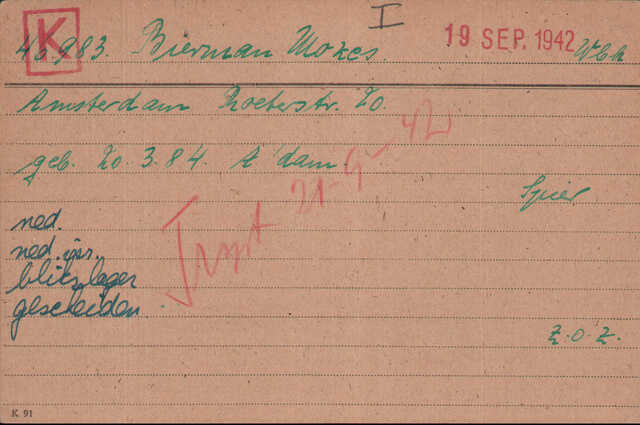 I
K
19 SEP. 1942
46983. Bierman Mozes. Wbk
Amsterdam Roeterstr. 20.
geb. 20.3.84. A'dam
Trspt 21-9-42
Spier
ned.
ned. isr.
blikslager
gescheiden.
z.o.z.
K 91